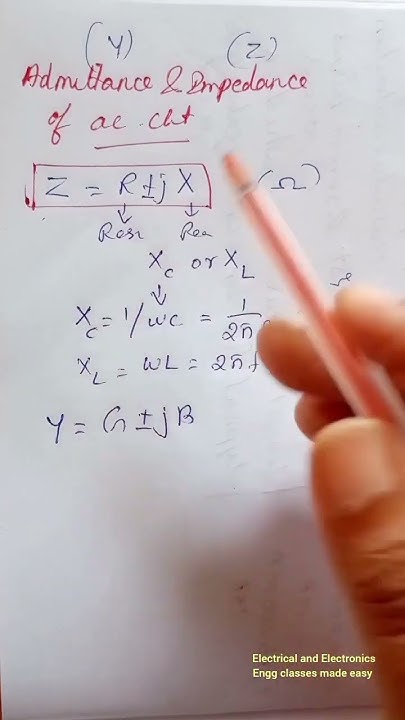 (Y) (Z)
Admittance & Impedance
of ac. ckt
Z = R ± j X (Ω)
Resi Rea
X_C or X_L
X_C = 1/ωC = 1/2π
X_L = ωL = 2πf
Y = G ± j B
Electrical and Electronics
Engg classes made easy